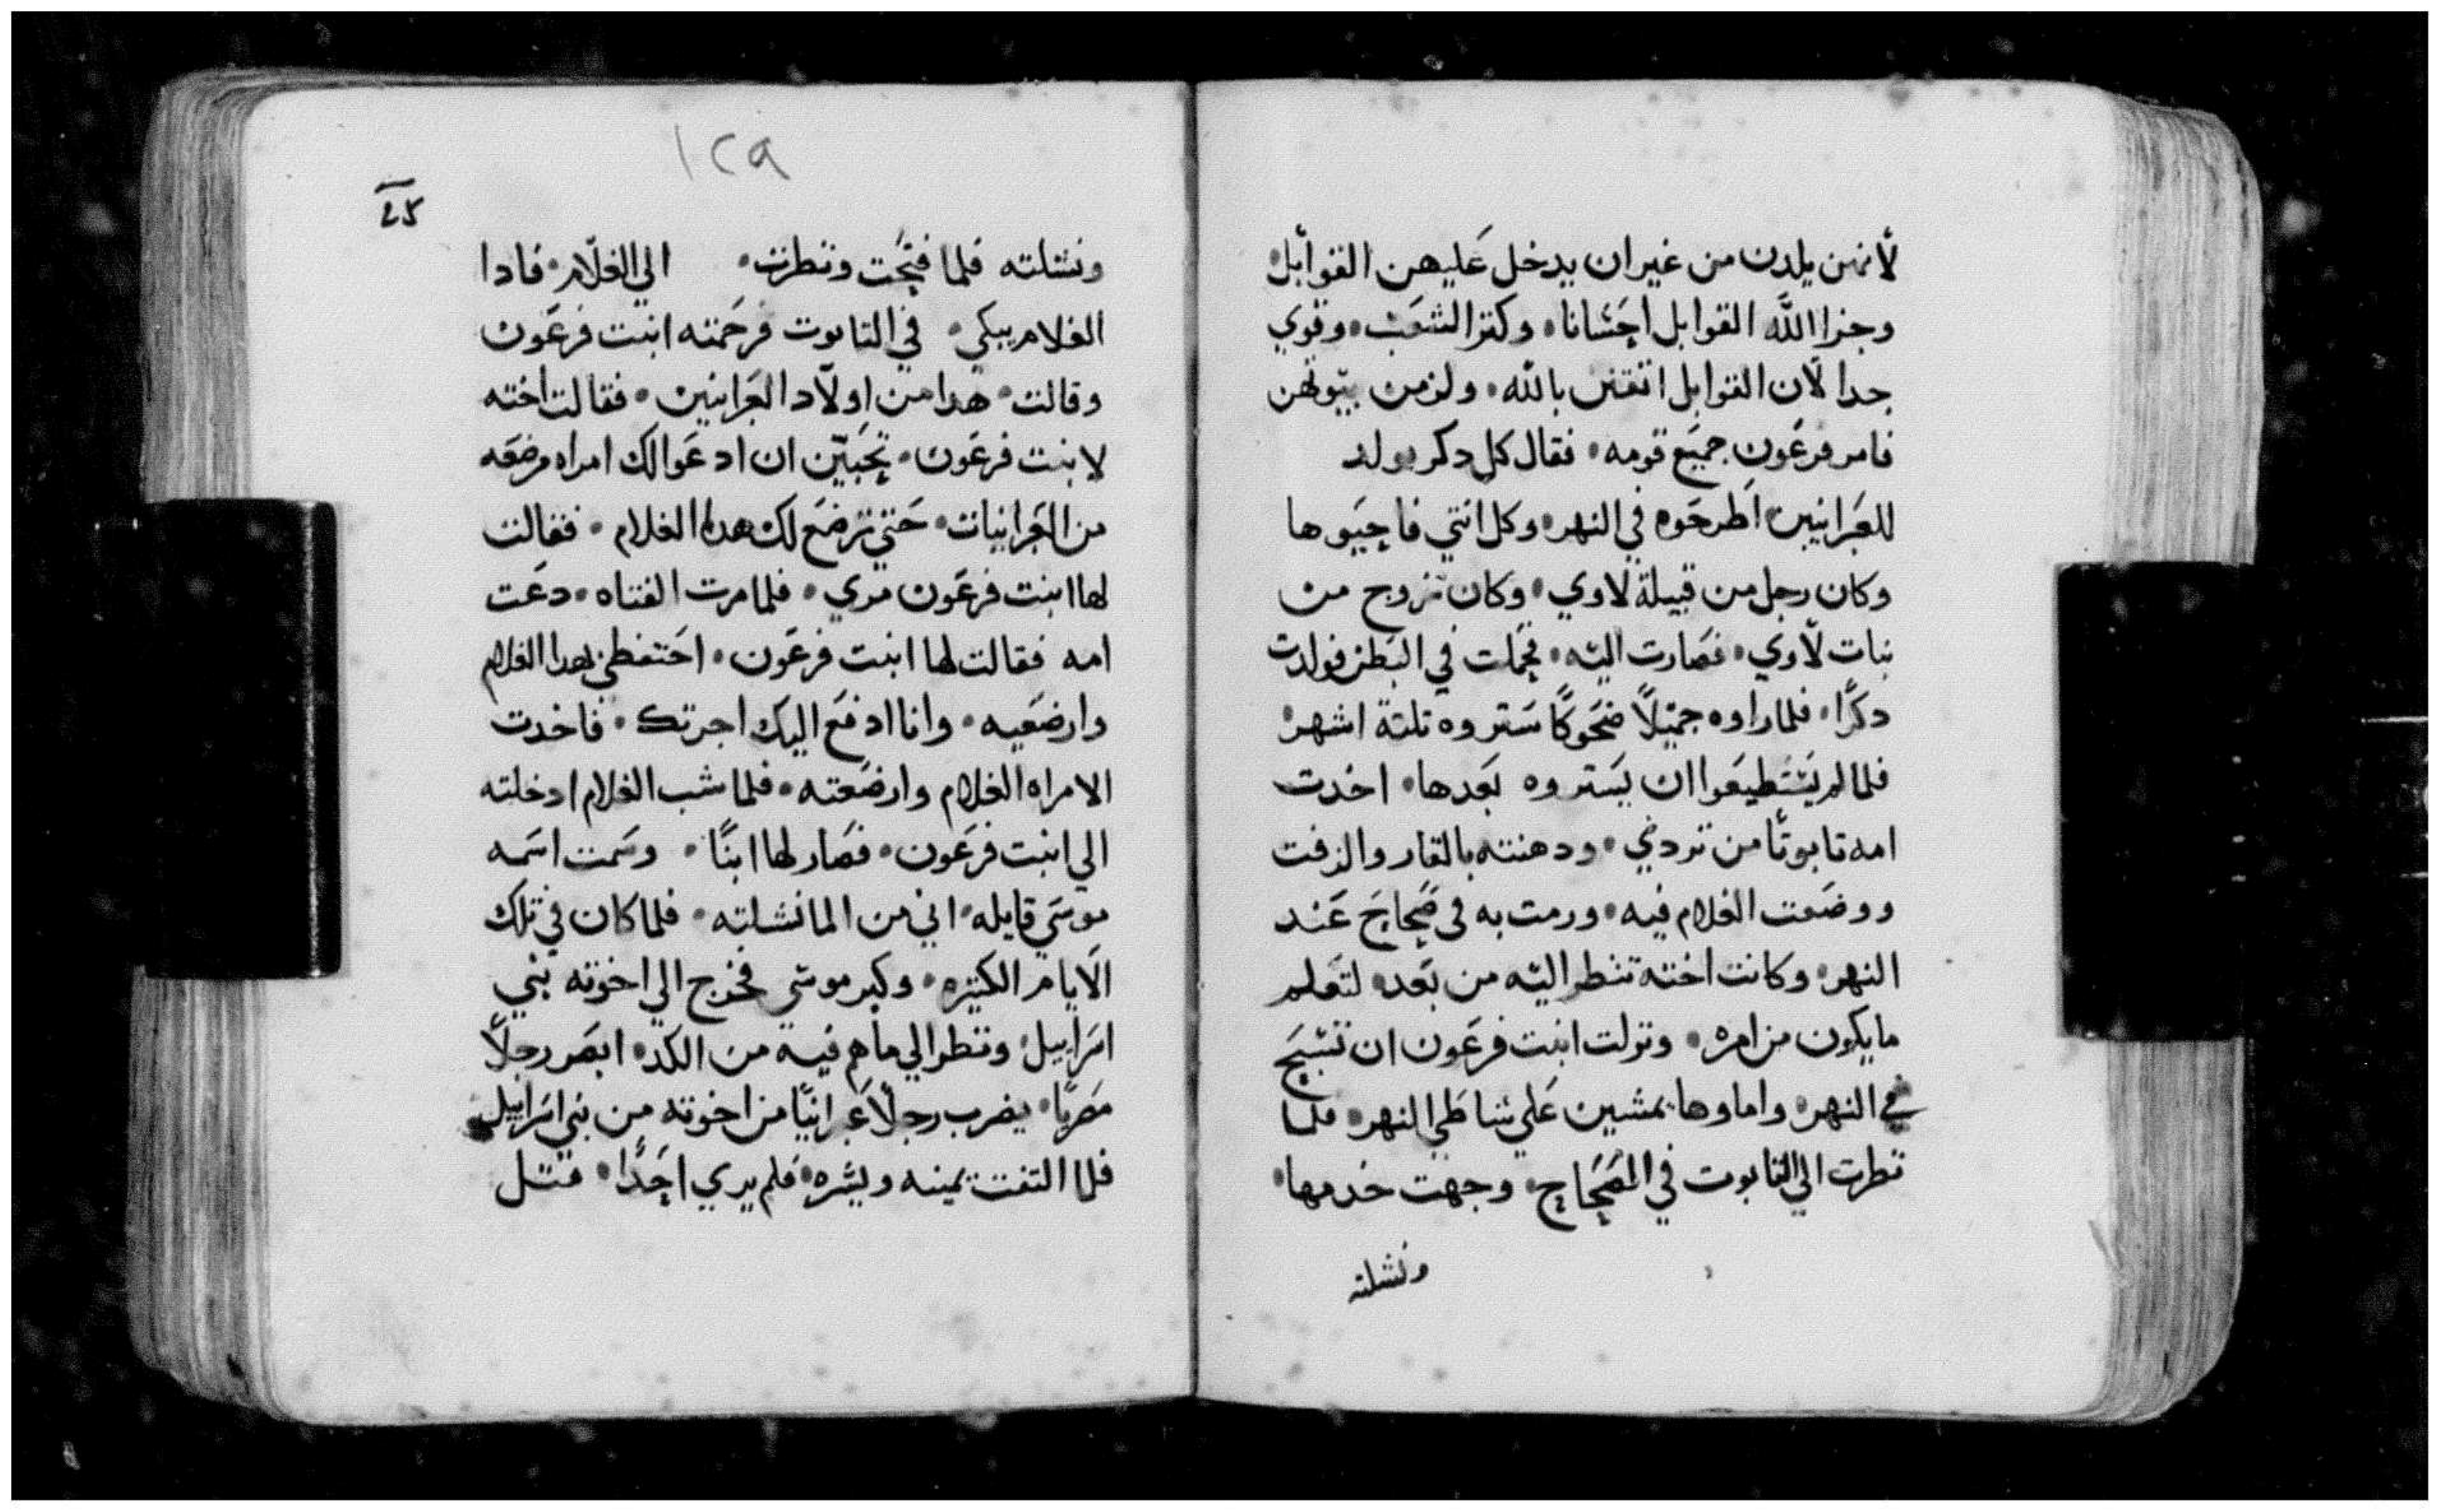 لأنهن يلدن من غير ان يدخل عليهن القوابل
وجزا الله القوابل احسانا وكتر الشعب وقوي
جدا لان القوابل اتقين بالله ولزمن بيوتهن
فامر فرعون جميع قومه فقال كل دكر يولد
للعبرانيين اطرحوه في النهر وكل انتي فاحيوها
وكان رجل من قبيلة لاوي وكان تزوج من
بنات لاوي فصارت اليه فحملت في البطن فولدت
دكرًا فلما راوه جميلًا ضحوكًا ستروه تلتة اشهر
فلما لم يستطيعوا ان يستروه بعدها اخدت
امه تابوتًا من بردي ودهنته بالقار والزفت
ووضعت الغلام فيه ورمت به في ضحاح عند
النهر وكانت اخته تنطر اليه من بعد لتعلم
ما يكون من امره ونزلت ابنت فرعون ان تسبح
في النهر واماوها يمشين علي شاطي النهر فلما
نطرت الي التابوت في الضحاح وجهت خدمها
ونشلته
١٢٩
ونشلته فلما فتحت ونطرت الي الغلام فادا
الغلام يبكي في التابوت فرحمته ابنت فرعون
وقالت هدا من اولاد العبرانيين فقالت اخته
لابنت فرعون تحبين ان ادعوا لك امراه مرضعه
من العبرانيات حتي ترضع لك هدا الغلام فقالت
لها ابنت فرعون مري فلما مرت الفتاه دعت
امه فقالت لها ابنت فرعون احتفطي بهدا الغلام
وارضعيه وانا ادفع اليك اجرتك فاخدت
الامراه الغلام وارضعته فلما شب الغلام ادخلته
الي ابنت فرعون فصار لها ابنًا وسمت اسمه
موسي قايله اني من الما نشلته فلما كان في تلك
الايام الكتيره وكبر موسي فخرج الي اخوته بني
اسراييل ونطر الي ما هم فيه من الكد ابصر رجلًا
مصريًا يضرب رجلًا عبرانيًا من اخوته من بني اسراييل
فلما التفت يمينه ويسره فلم يري احدًا قتل